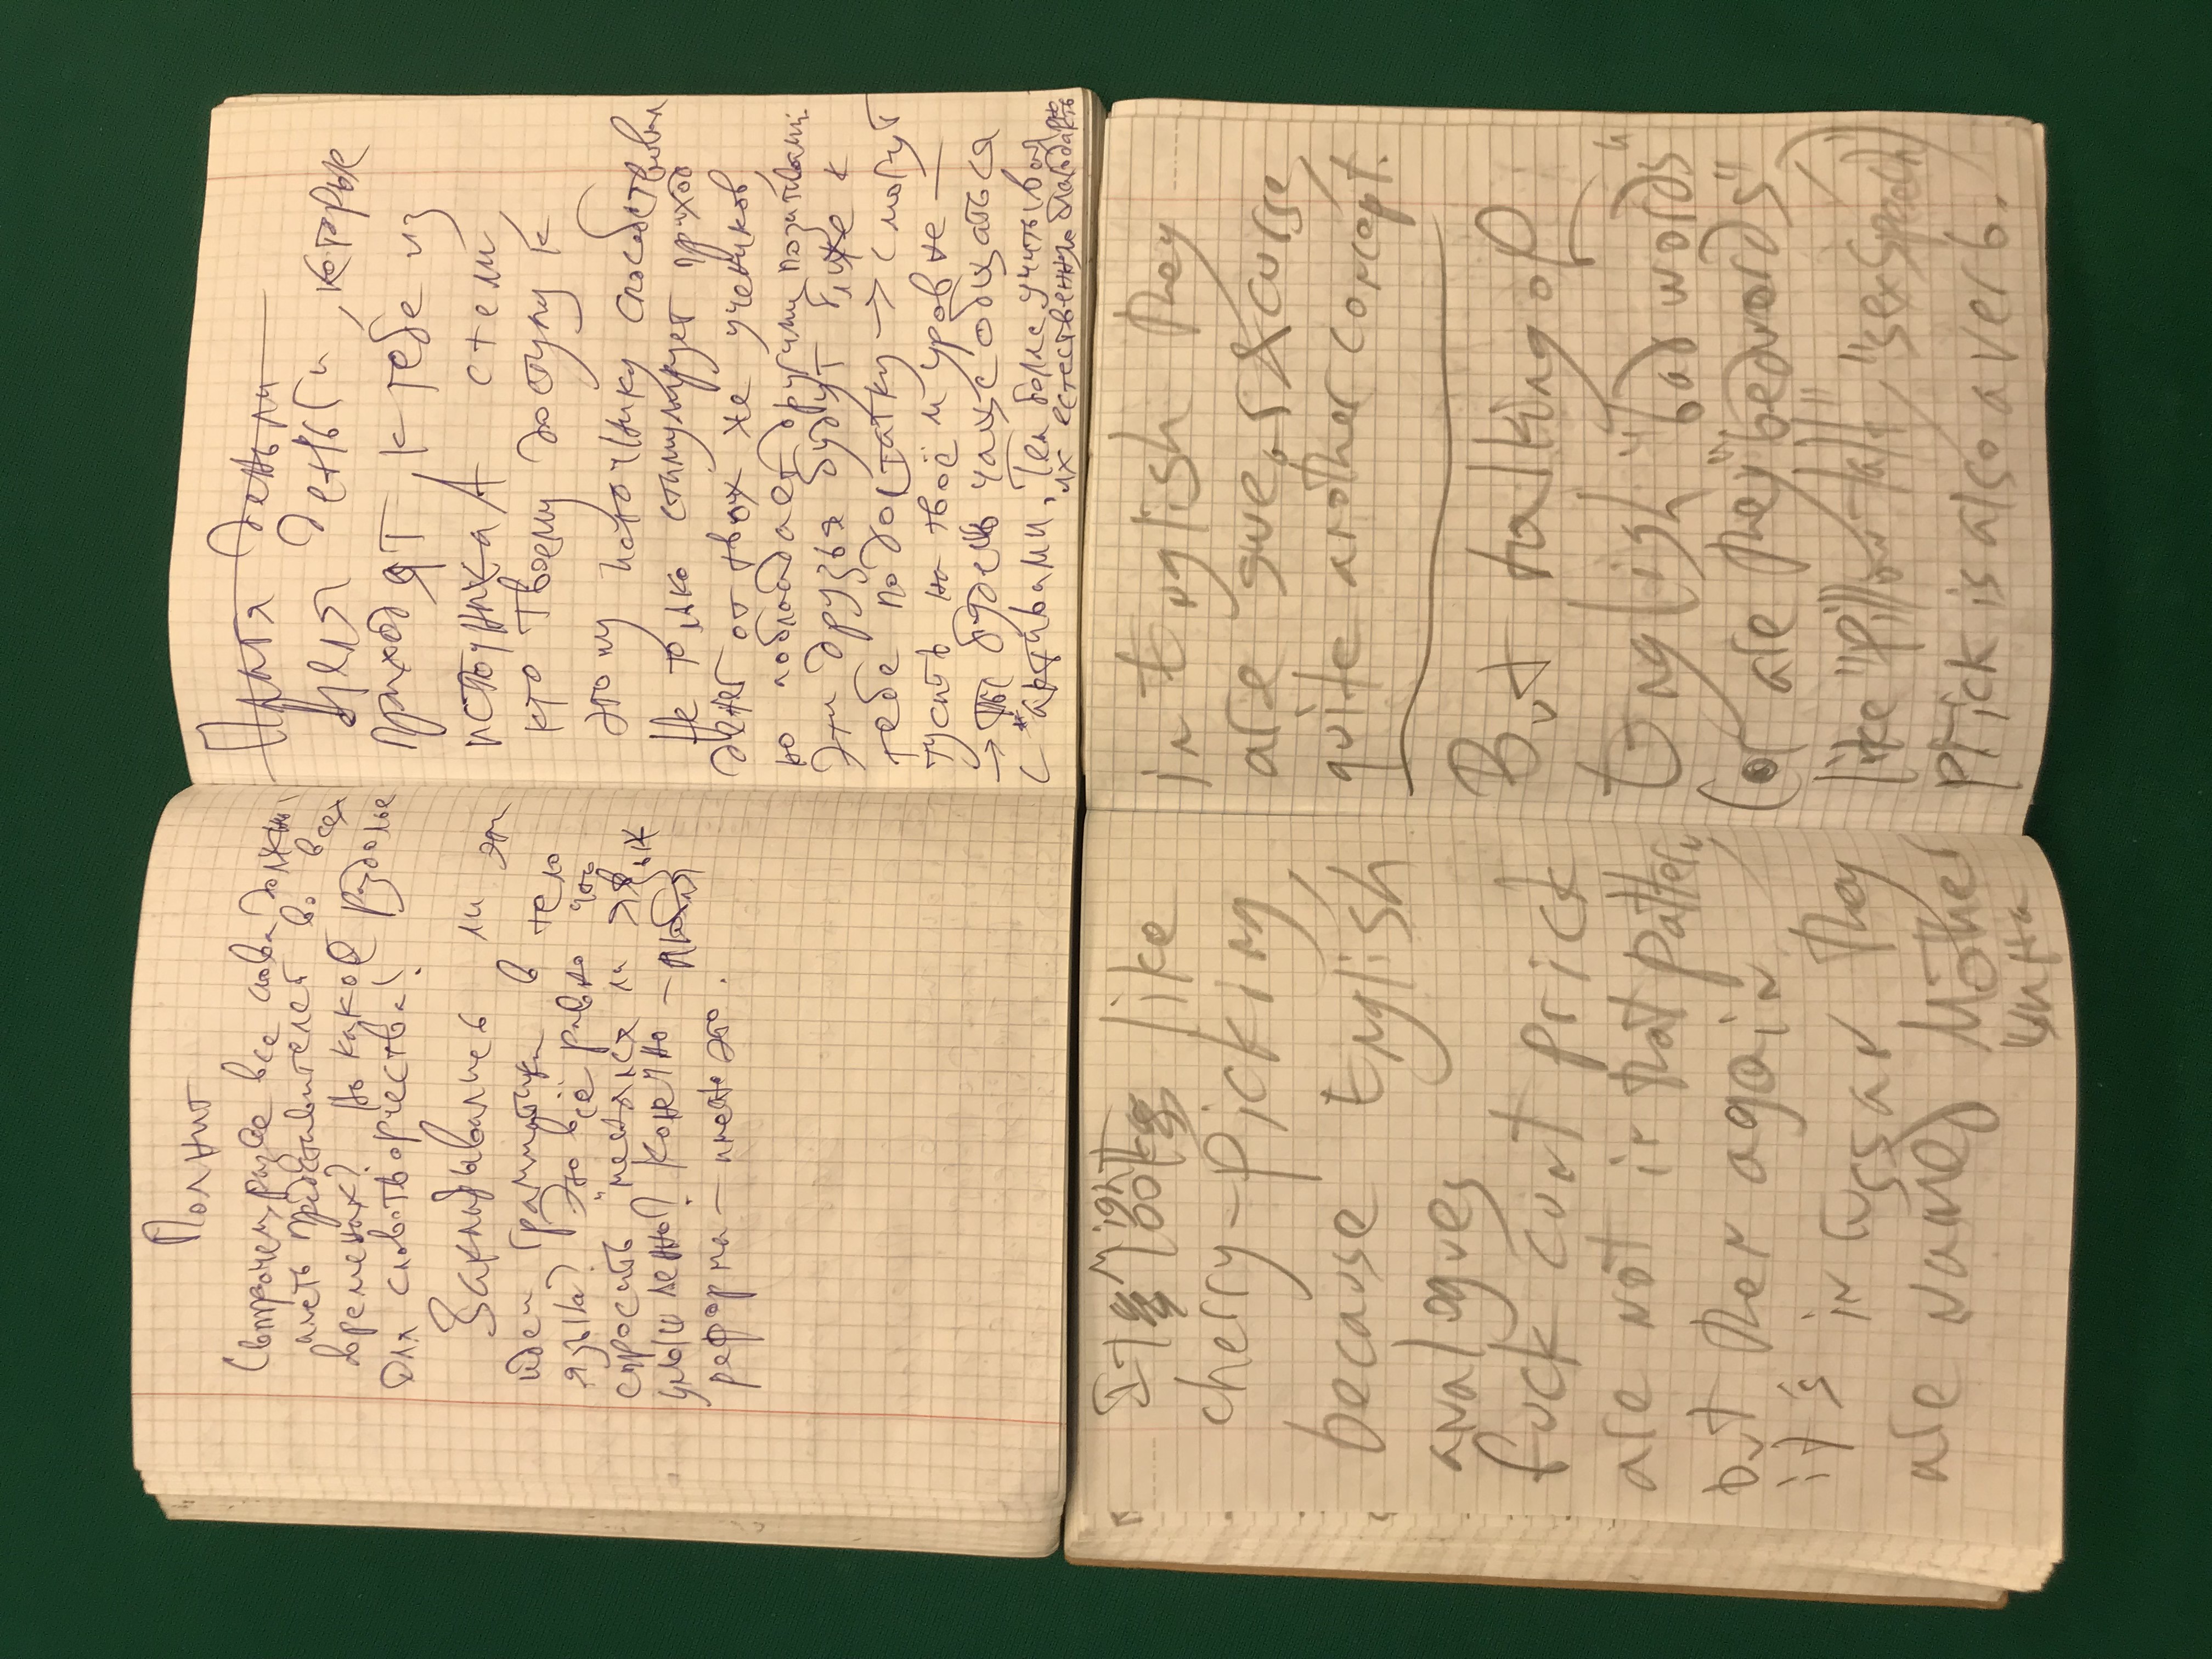 Полнит
(впрочем, разве все слова должны
иметь представителей во всех
временах? Но какое раздолье
для словотворчества!
Закладывались ли эти
идеи грамматики в тело
языка? Это всё равно что
спросить "менялся ли язык
умышленно? Конечно – любая
реформа – именно это.
Платя деньги
Деля деньги, которые
приходят к тебе из
источника А с теми,
кто твоему доступу к
этому источнику способствовал
Не только стимулирует приход
денег от твоих же учеников,
но и обладает другими позитивами.
Эти друзья будут ближе к
тебе по достатку → смогут
тусить на твоём уровне —
→ ты будешь чаще общаться
с *активами. Тем более учитывая
их естественную благодарность
It Might look like
cherry-picking,
because English
analogues
fuck cunt prick
are not in that pattern,
but then again
it's in russian they
are named Mother
щина
in English they
are swear & curse,
quite another concept.
But talking of
English "bad words"
(or are they "bedwords",
like "pillow talk", "sexspeech")
prick is also a verb.